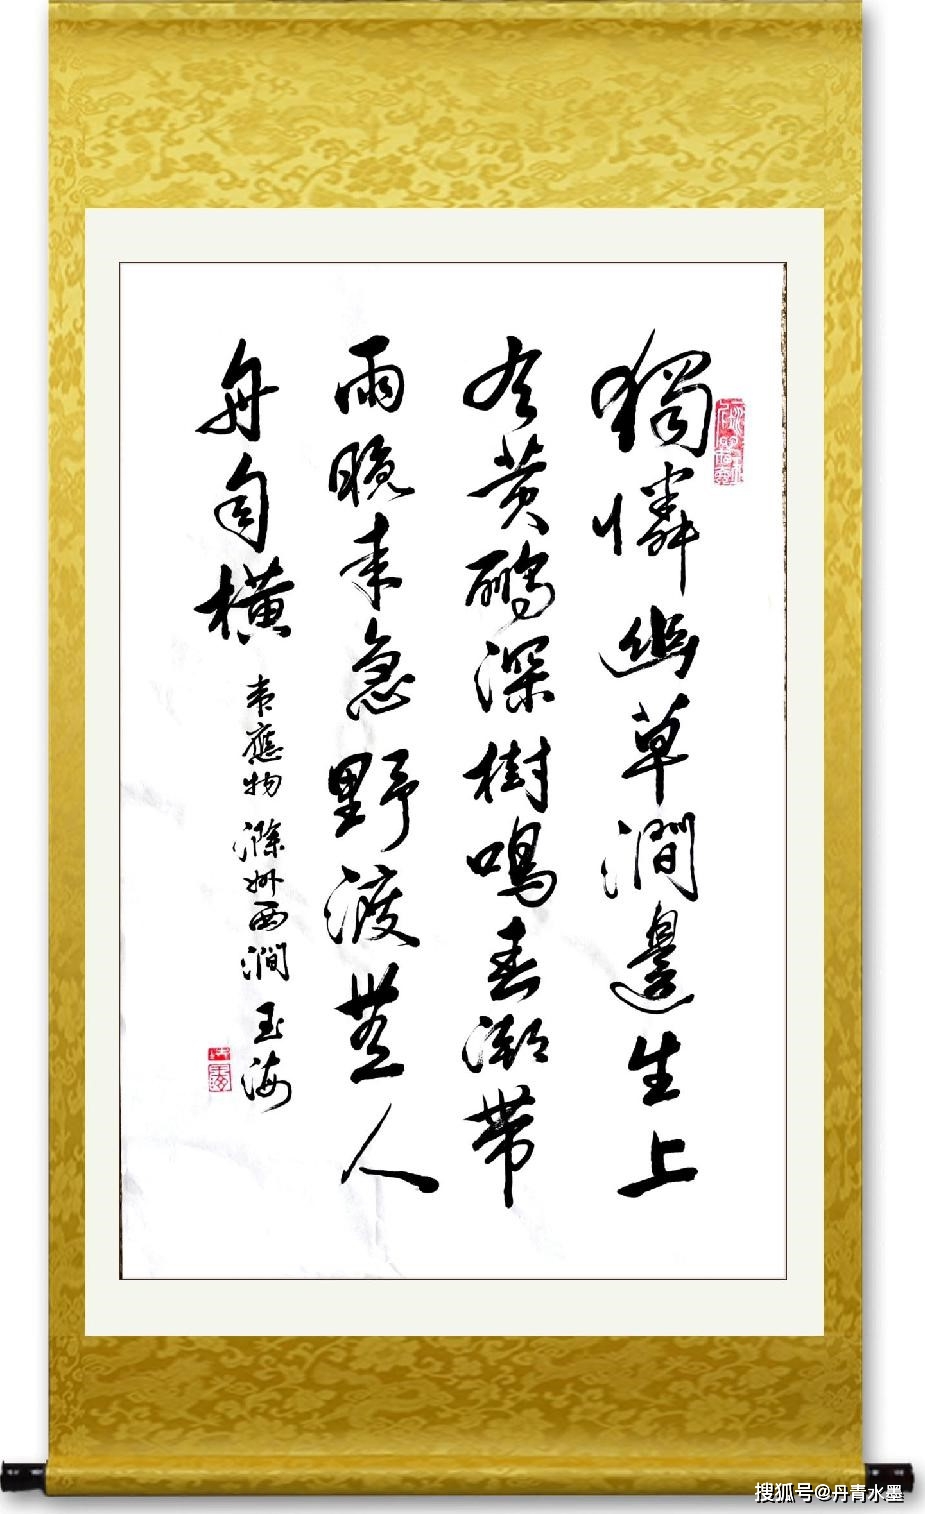 獨憐幽草澗邊生上
有黄鹂深樹鳴春潮帶
雨晚来急野渡無人
舟自橫
韦應物 滁州西澗 玉海
搜狐号@丹青水墨